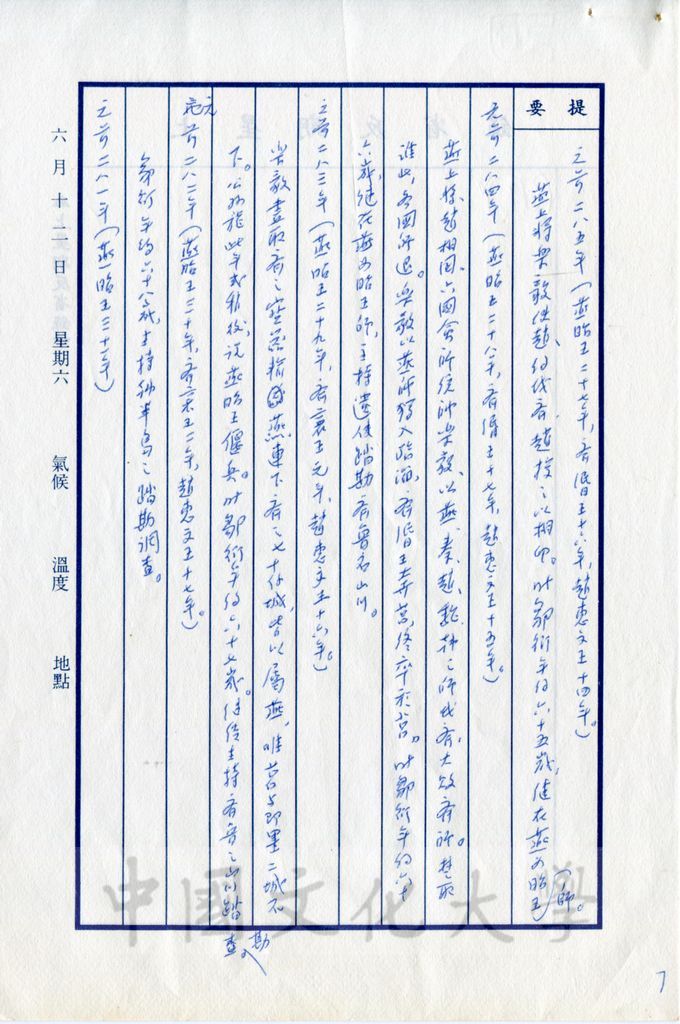 提要
元前二八五年(燕昭王二十七年,齊湣王十六年,趙惠文王十四年。)
燕上將樂毅使趙,約伐齊,趙授之以相印。時鄒衍年約六十五歲,仕在燕為昭王師。
元前二八四年(燕昭王二十八年,齊湣王十七年,趙惠文王十五年。)
燕上將、趙相國、六國合師統帥樂毅,以燕、秦、趙、魏、韓之師伐齊,大敗齊師。楚取
淮北,各國師退。樂毅以燕師獨入臨淄,齊湣王奔莒,終卒於莒。時鄒衍年約六十
六歲,仕在燕為昭王師,主持遣使踏勘齊魯名山川。
元前二八三年(燕昭王二十九年,齊襄王元年,趙惠文王十六年。)
樂毅盡取齊之寶器輸國燕,連下齊之七十餘城,皆以屬燕,唯莒與即墨二城不
下。公孫龍此年或稍後,說燕昭王偃兵。時鄒衍年約六十七歲。繼續主持齊魯之山川踏勘查。
元前二八二年(燕昭王三十年,齊襄王二年,趙惠文王十七年。)
鄒衍年約六十八歲,主持神半島之踏勘調查。
元前二八一年(燕昭王三十一年)
六月十二日 星期六 氣候 溫度 地點
中國文化大學
7